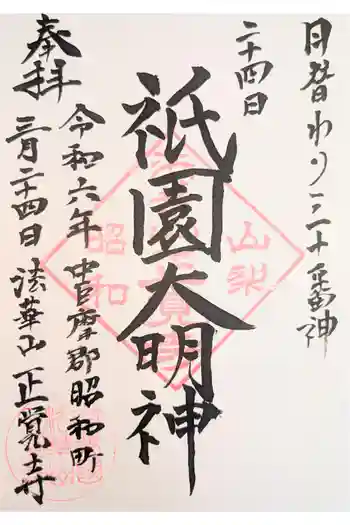 日替わり三十番神
二十四日
祇園大明神
奉拝
令和六年 中巨摩郡昭和町
三月二十四日 法華山 正覚寺
山梨
昭和